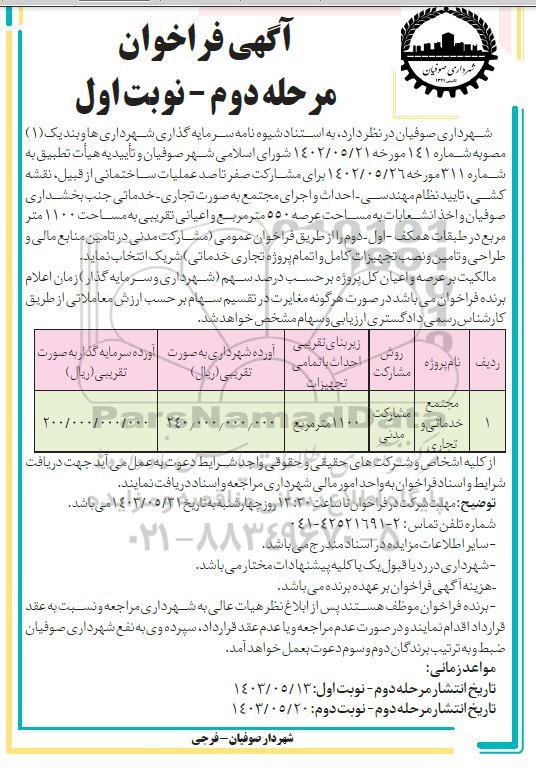 آگهی فراخوان
مرحله دوم - نوبت اول
شهرداری صوفیان
شهرداری صوفیان در نظر دارد، به استناد شیوه نامه سرمایه گذاری شهرداری ها و بند یک (۱)
مصوبه شماره ۱۴۱ مورخه ۱۴۰۲/۰۵/۲۱ شورای اسلامی شهر صوفیان و تأییدیه هیأت تطبیق به
شماره ۳۱۱ مورخه ۱۴۰۲/۰۵/۲۶ برای مشارکت صفر تا صد عملیات ساختمانی از قبیل، نقشه
کشی، تایید نظام مهندسی - احداث و اجرای مجتمع به صورت تجاری - خدماتی جنب بخشداری
صوفیان و اخذ انشعابات به مساحت عرصه ۵۵۰ متر مربع و اعیانی تقریبی به مساحت ۱۱۰۰ متر
مربع در طبقات همکف - اول - دوم را از طریق فراخوان عمومی (مشارکت مدنی در تامین منابع مالی و
طراحی و تامین و نصب تجهیزات کامل و اتمام پروژه تجاری خدماتی) شریک انتخاب نماید.
مالکیت بر عرصه و اعیان کل پروژه بر حسب درصد سهم (شهرداری و سرمایه گذار) زمان اعلام
برنده فراخوان می باشد در صورت هرگونه مغایرت در تقسیم سهام بر حسب ارزش معاملاتی از طریق
کارشناس رسمی دادگستری ارزیابی و سهام مشخص خواهد شد.
ردیف | نام پروژه | روش مشارکت | زیر بنای تقریبی احداث با تمامی تجهیزات | آورده شهرداری به صورت تقریبی (ریال) | آورده سرمایه گذار به صورت تقریبی (ریال)
۱ | مجتمع خدماتی و تجاری | مشارکت مدنی | ۱۱۰۰ متر مربع | ۲۴۰/۰۰۰/۰۰۰/۰۰۰ | ۲۰۰/۰۰۰/۰۰۰/۰۰۰
ParsNamadData
۰۲۱-۸۸۳۴۹۶۷۰-۵
از کلیه اشخاص و شرکت های حقیقی و حقوقی واجد شرایط دعوت به عمل می آید جهت دریافت
شرایط و اسناد فراخوان به واحد امور مالی شهرداری مراجعه و اسناد دریافت نمایند.
توضیح: مهلت شرکت در فراخوان تا ساعت ۱۳:۳۰ روز چهارشنبه به تاریخ ۱۴۰۳/۰۵/۳۱ می باشد.
شماره تلفن تماس: ۲-۴۲۵۲۱۶۹۱-۰۴۱
-سایر اطلاعات مزایده در اسناد مندرج می باشد.
-شهرداری در رد یا قبول یک یا کلیه پیشنهادات مختار می باشد.
-هزینه آگهی فراخوان بر عهده برنده می باشد.
-برنده فراخوان موظف هستند پس از ابلاغ نظر هیات عالی به شهرداری مراجعه و نسبت به عقد
قرارداد اقدام نمایند و در صورت عدم مراجعه و یا عدم عقد قرارداد، سپرده وی به نفع شهرداری صوفیان
ضبط و به ترتیب برندگان دوم و سوم دعوت بعمل خواهد آمد.
مواعد زمانی:
تاریخ انتشار مرحله دوم - نوبت اول: ۱۴۰۳/۰۵/۱۳
تاریخ انتشار مرحله دوم - نوبت دوم: ۱۴۰۳/۰۵/۲۰
شهردار صوفیان - فرجی